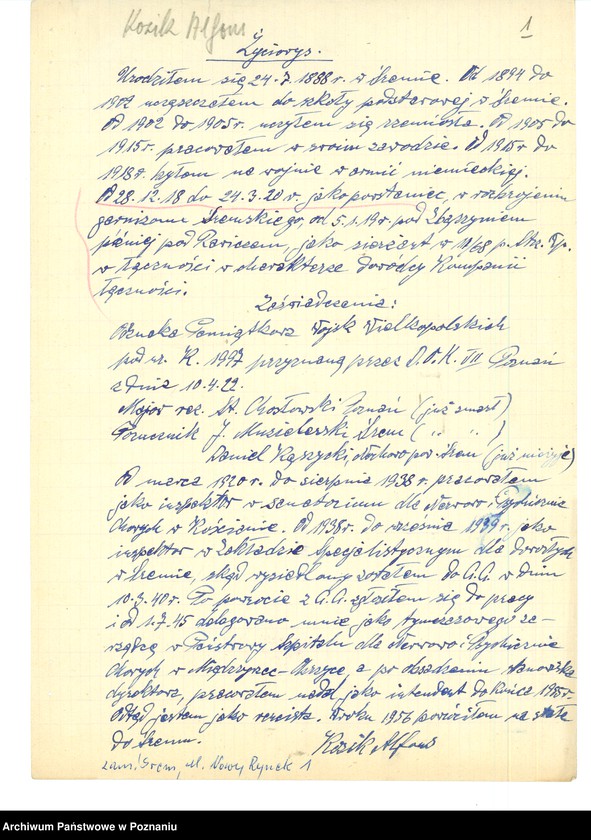 Kozik Alfons
1
Życiorys.
Urodziłem się 24.7.1888 r. w Śremie. Od 1894 do
1902 uczęszczałem do szkoły podstawowej w Śremie.
Od 1902 do 1905 r. uczyłem się rzemiosła. Od 1905 do
1915 r. pracowałem w swoim zawodzie. Od 1915 r. do
1918 r. byłem na wojnie w armii niemieckiej.
Od 28.12.18 do 24.3.20 r. jako powstaniec, w rozbrojeniu
garnizonu Śremskiego, od 5.1.19 r. pod Zbąszyniem
później pod Rawiczem, jako sierżant w 11/68 p.
w łączności w charakterze dowódcy Kompanii
łączności.
Zaświadczenia:
Odznaka Pamiątkowa Wojsk Wielkopolskich
pod nr. K. 1997 przyznaną przez D.O.K. VII Poznań
z dnia 10.4.22.
Major rez. St. Chosłowski Poznań (już zmarł)
Porucznik J. Musielewski Śrem ( " " )
Daniel Kęszycki, pow. Śrem (już nieżyje)
Od marca 1920 r. do sierpnia 1938 r. pracowałem
jako inspektor w sanatorium dla Nerwowo i Psychicznie
Chorych w Kościanie. Od 1938 r. do września 1939 r. jako
inspektor w Zakładzie Specjalistycznym dla dorosłych
w Śremie, skąd wysiedlony zostałem do G.G. w dniu
10.3.40 r. Po powrocie z G.G. zgłosiłem się do pracy
i od 1.7.45 delegowano mnie jako tymczasowego za-
rządcę w Państwowy Szpitalu dla Nerwowo i Psychicznie
Chorych w Międzyrzec-Obrzyce, a po obsadzeniu stanowiska
dyrektora, pracowałem nadal jako intendent do końca r.
Odtąd jestem jako rencista. W roku 1956 powróciłem na stałe
do Śremu.
Kozik Alfons
zam. Śrem, ul. Nowy Rynek 1
Archiwum Państwowe w Poznaniu